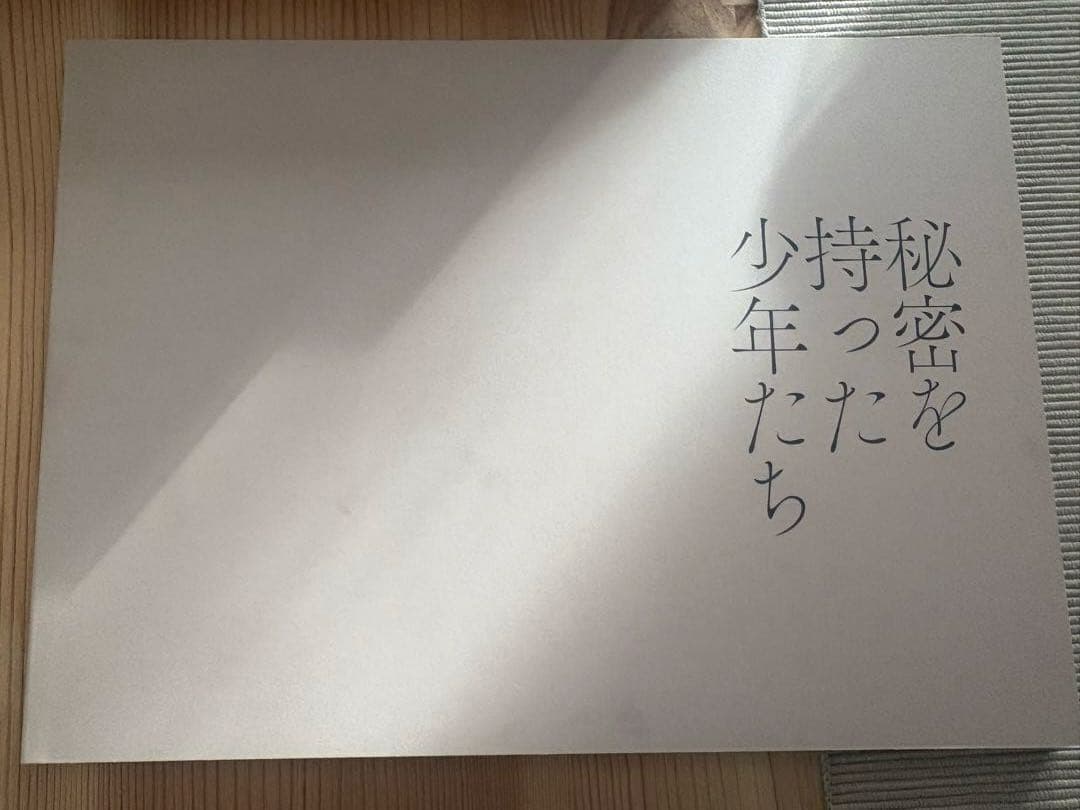 秘密を
持った
少年たち